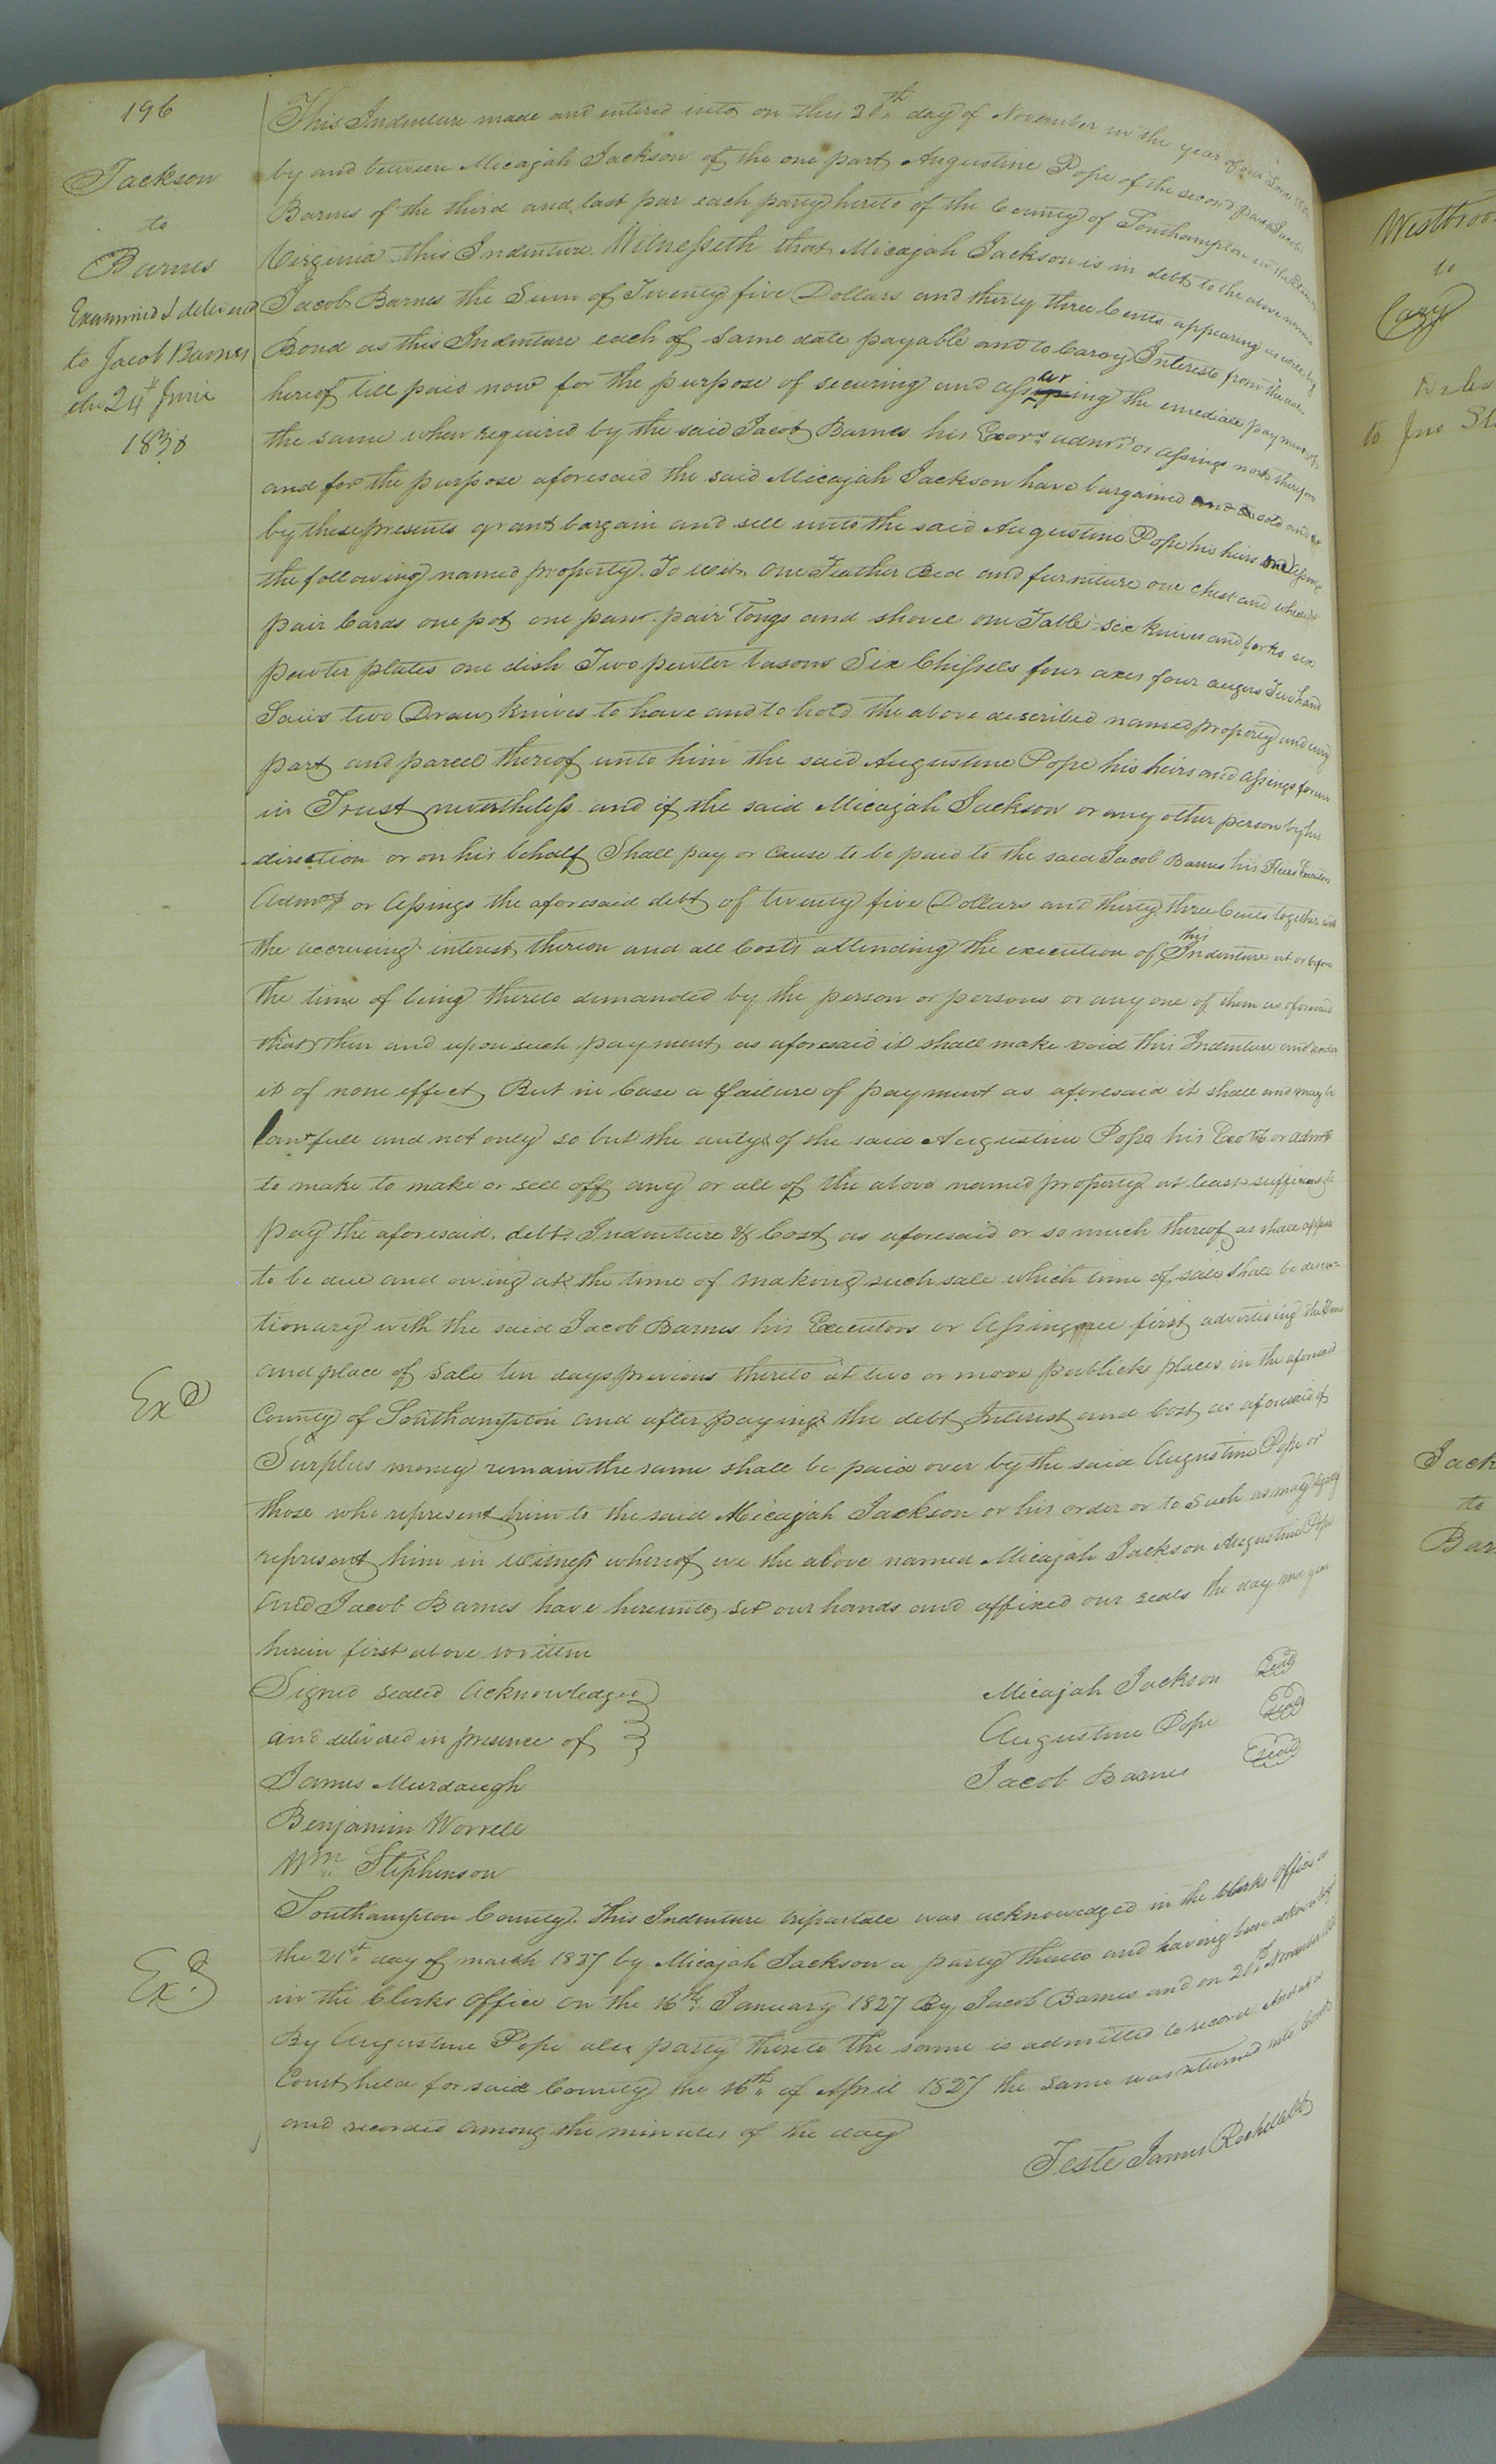 196
Jackson
to
Barnes
Examined & delivered
to Jacob Barnes
the 24th June
1830
This Indenture made and entered into on this 20th day of November in the year of our Lord
by and between Micajah Jackson of the one part Augustine Pope of the second part Jacob
Barnes of the third and last par each party hereto of the County of Southampton in the State of
Virginia this Indenture Witnesseth that Micajah Jackson is in debt to the above named
Jacob Barnes the Sum of Twenty five Dollars and thirty three Cents appearing as will by
Bond as this Indenture each of same date payable and to Carry Interest from the date
hereof till paid now for the purpose of securing and assuring the emediate payment of
the same when required by the said Jacob Barnes his Exors admrs or assings now therefore
and for the purpose aforesaid the said Micajah Jackson have bargained and sold and
by these presents grant bargain and sell unto the said Augustine Pope his heirs and assings
the following named property. To wit, One Feather Bed and furniture one chest and wheel
pair Cards one pot one pan pair Tongs and shovel one Table six knives and forks six
pewter plates one dish Two pewter basons Six Chissels four axes four augers Two hand
Saws two Draw knives to have and to hold the above described named property and every
part and parcel thereof unto him the said Augustine Pope his heirs and assings forever
in Trust nevertheless and if the said Micajah Jackson or any other person by his
direction or on his behalf Shall pay or Cause to be paid to the said Jacob Barnes his Heirs Executors
Admrs or Assings the aforesaid debt of twenty five Dollars and thirty three Cents together with
the accrueing interest thereon and all Costs attending the execution of this Indenture at or before
the time of being thereto demanded by the person or persons or any one of them as aforesaid
that then and upon such payment as aforesaid it shall make void this Indenture and render
it of none effect But in Case a failure of payment as aforesaid it shall and may be
lawfull and not only so but the duty of the said Augustine Pope his Exors or admrs
to make to make or sell off any or all of the above named property at least sufficient to
pay the aforesaid debt Indenture & Cost as aforesaid or so much thereof as shall appear
to be due and owing at the time of making such sale which time of sale shall be discre
tionary with the said Jacob Barnes his Executors or Assingnee first advertising the Time
and place of Sale ten days previous thereto at two or more publick places in the aforesaid
Exd
County of Southampton and after paying the debt Interest and Cost as aforesaid if
Surplus money remain the same shall be paid over by the said Augustine Pope or
those who represent him to the said Micajah Jackson or his order or to Such as may legally
represent him in witness whereof we the above named Micajah Jackson Augustine Pope
and Jacob Barnes have hereunto set our hands and affixed our seals the day and year
herein first above written
Signed sealed Acknowledged
and delivered in presence of
James Murdaugh
Benjamin Worrell
Wm Stephenson
Micajah Jackson Seal
Augustine Pope Seal
Jacob Barnes Seal
Southampton County. This Indenture tripartate was acknowledged in the Clerks Office on
the 21st day of march 1827 by Micajah Jackson a party thereto and having been acknowledged
Exd
in the Clerks Office on the 16th January 1827 By Jacob Barnes and on 20th November
By Augustine Pope also party thereto the same is admitted to record And at a
Court held for said County the 16th of April 1827 the same was returned into Court
and recorded among the minutes of the day
Teste James Rochelle Clk
Westbroo
to
Cary
to Jno St
Jack
to
Bar